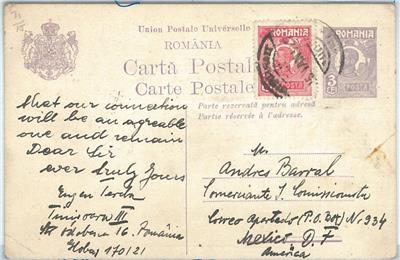 Union Postale Universelle
ROMÂNIA
Cartă Postală
Carte Postale
Parte rezervată pentru adresă
Partie réservée à l'adresse.
ROMANIA
POSTA
ROMANIA
3
LEI
POSTA
that our connection
will be an agreable
one and remain
Dear Sir
ever truly yours
Eugen
Timișoara III
16. România
170/21
Andres Barral
Comerciante & Comissionista
Correo Apartado (P.O. Box) No 934
Mexico D.F
América